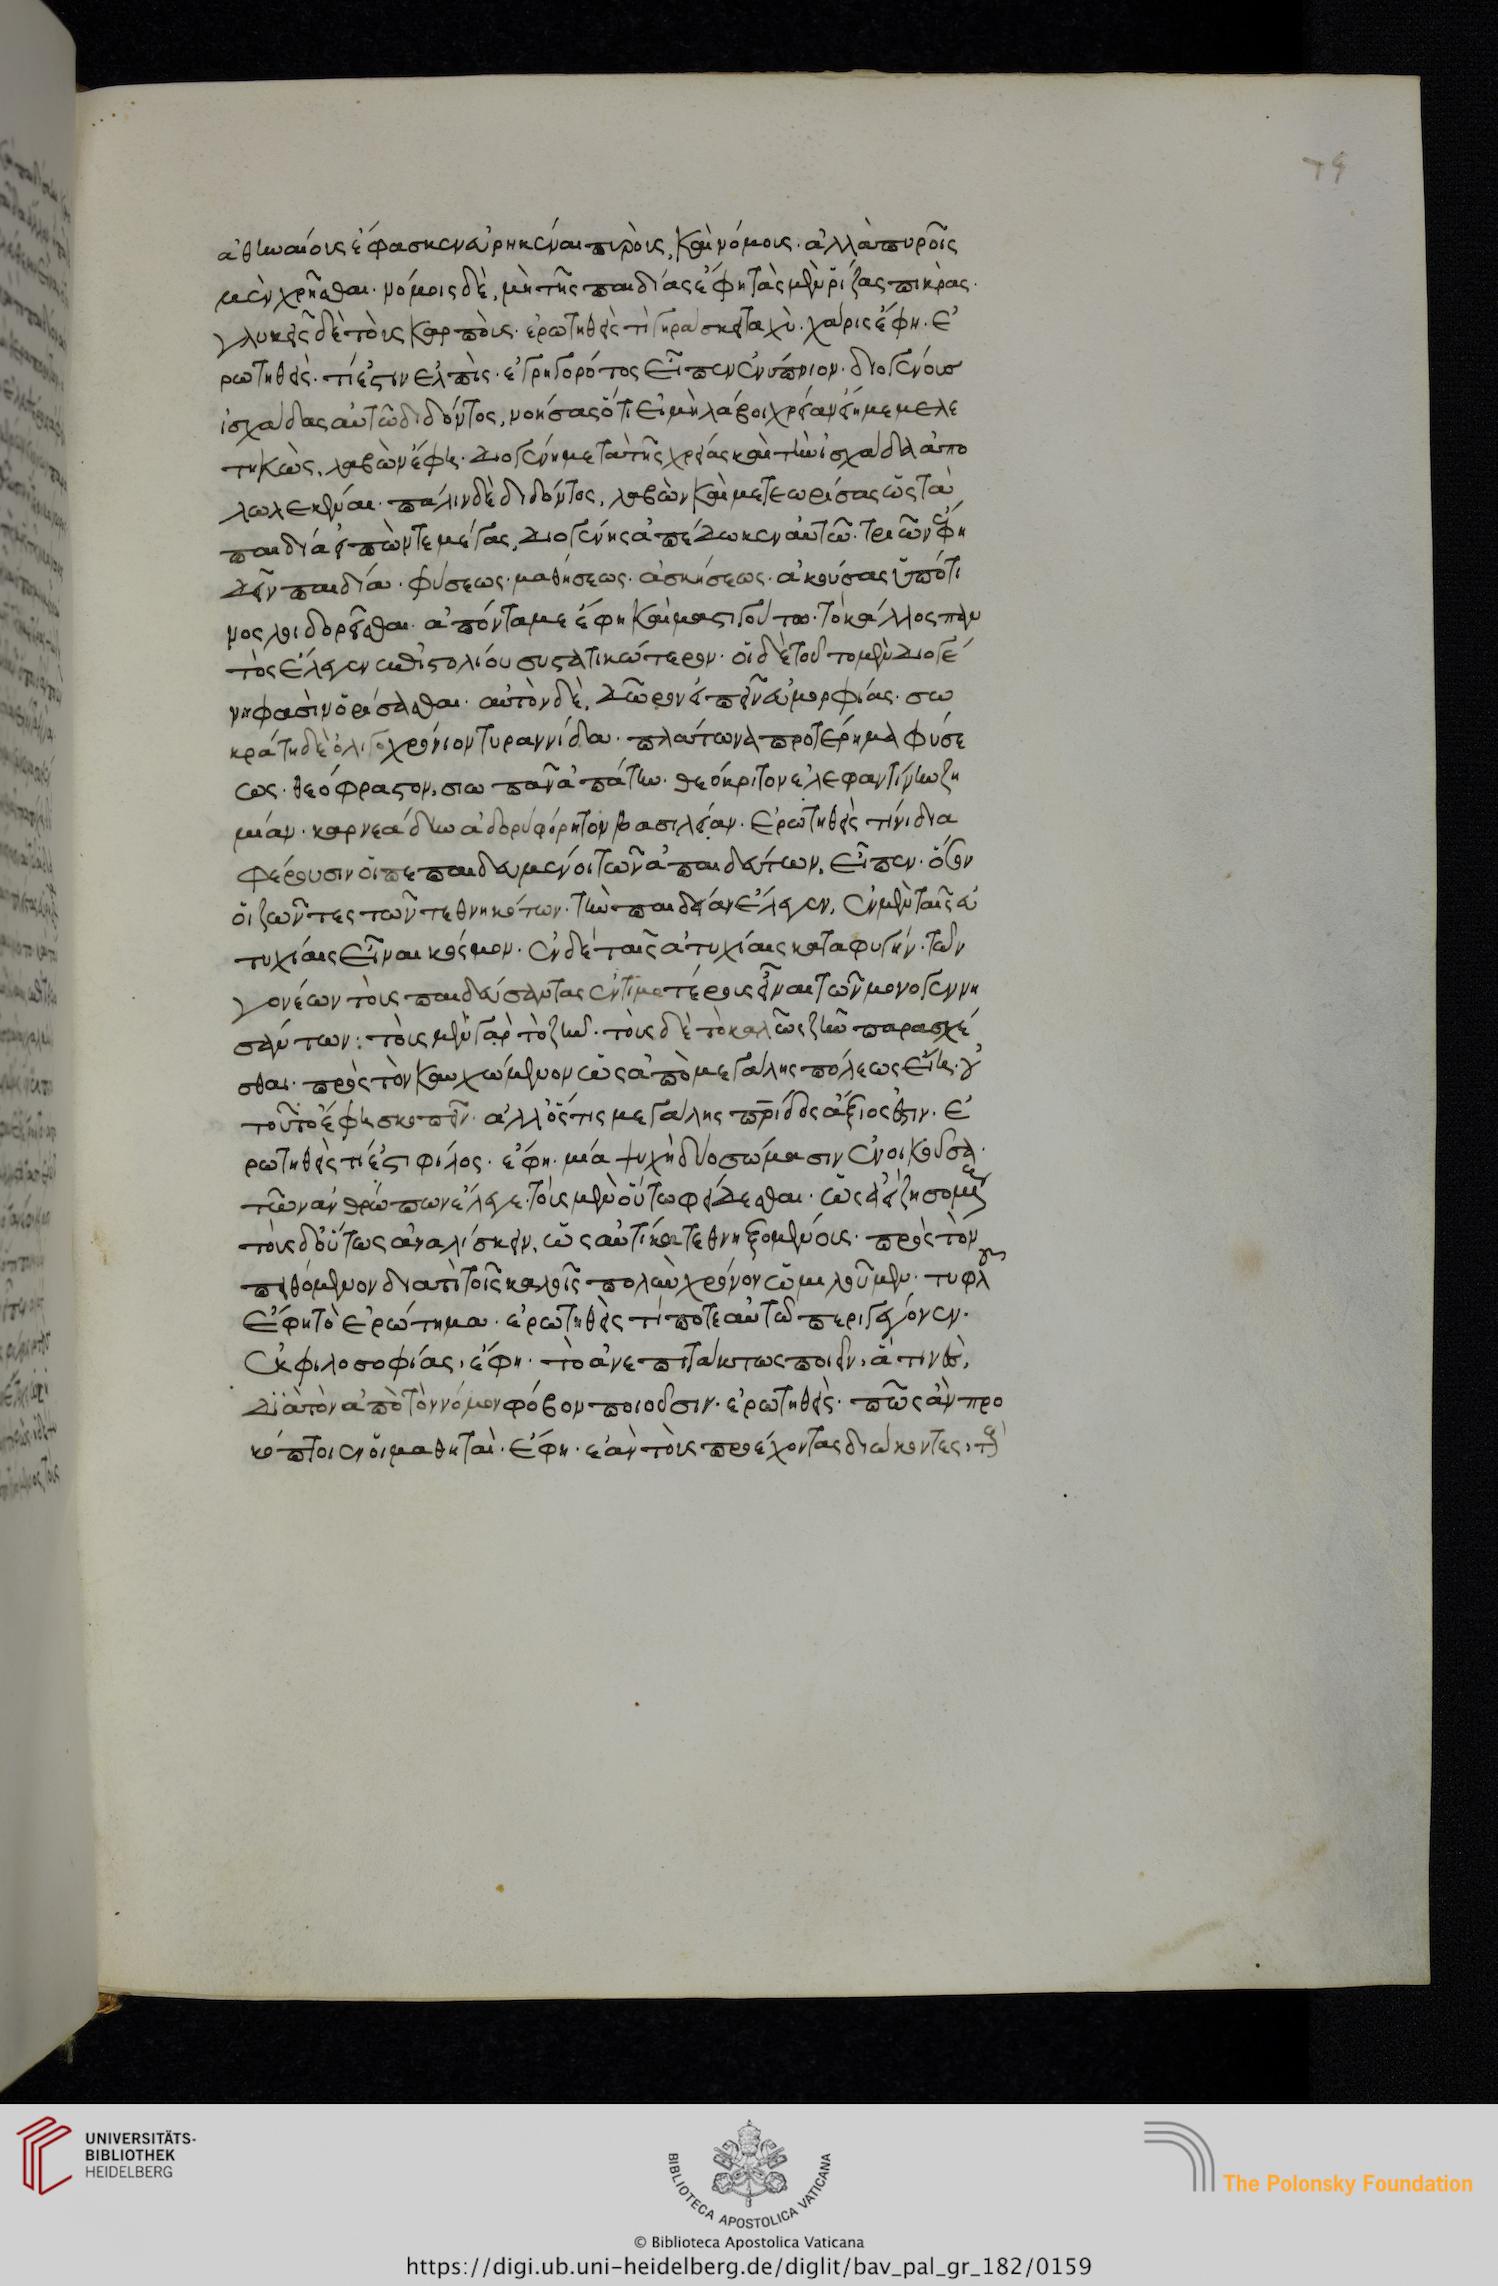 79
ἀθηναίους ἔφασκεν εὑρηκέναι πυροὺς, καὶ νόμους. ἀλλὰ πυροῖς
μὲν χρῆσθαι. νόμοις δὲ, μὴ τῆς παιδείας ἔφη τὰς μὲν ῥίζας πικρὰς.
γλυκεῖς δὲ τοὺς καρποὺς. ἐρωτηθεὶς τί γηράσκει ταχὺ. χάρις ἔφη. ἐ
ρωτηθεὶς. τί ἐστιν ἐλπὶς. ἐγρηγορότος εἶπεν ἐνύπνιον. διογένους
ἰσχάδας αὐτῶ διδόντος, νοήσας ὅτι εἰ μὴ λάβοι χρείαν εἴη μεμελε
τηκὼς, λαβὼν ἔφη. διογένη μετὰ τῆς χρείας καὶ τὴν ἰσχάδα ἀπο
λωλεκέναι. πάλιν δὲ διδόντος, λαβὼν καὶ μετεωρίσας ὡς τὰ
παιδία εἰπών τε μέγας, διογένης ἀπέδωκεν αὐτῶ. τριῶν ἔφη
δεῖν παιδεία. φύσεως. μαθήσεως. ἀσκήσεως. ἀκούσας ὑπό τι
νος λοιδορεῖσθαι. ἀπόντα με ἔφη καὶ μαστιγούτω. τὸ κάλλος παν
τὸς ἔλεγεν ἐπιστολίου συστατικώτερον. οἱ δὲ τοῦτο μὲν διογέ
νη φασὶν ὁρίσασθαι. αὐτὸν δὲ, δῶρον εἰπεῖν εὐμορφίας. σω
κράτη δὲ ὀλιγοχρόνιον τυραννίδα. πλάτωνα προτέρημα φύσε
ως. θεόφραστον, σιωπῶσαν ἀπάτην. θεόκριτον ἐλεφαντίνην ζη
μίαν. καρνεάδην ἀδορυφόρητον βασιλείαν. ἐρωτηθεὶς τίνι δια
φέρουσιν οἱ πεπαιδευμένοι τῶν ἀπαιδεύτων, εἶπεν. ὅσον
οἱ ζῶντες τῶν τεθνηκότων. τὴν παιδείαν ἔλεγεν, ἐν μὲν ταῖς εὐ
τυχίαις εἶναι κόσμον. ἐν δὲ ταῖς ἀτυχίαις καταφυγήν. τῶν
γονέων τοὺς παιδεύσαντας ἐντιμοτέρους εἶναι τῶν μόνο γεννη
σάντων: τοὺς μὲν γὰρ τὸ ζῆν. τοὺς δὲ τὸ καλῶς ζῆν παρασχέ
σθαι. πρὸς τὸν καυχώμενον ὡς ἀπὸ μεγάλης πόλεως εἴη. οὐ
τοῦτο ἔφη σκοπεῖν. ἀλλ' ὅστις μεγάλης πρίδος ἄξιός ἐστιν. ἐ
ρωτηθεὶς τί ἐστι φίλος. ἔφη. μία ψυχὴ δύο σώμασιν ἐνοικοῦσα.
τῶν ἀνθρώπων ἔλεγε. τοὺς μὲν οὕτω φείδεσθαι. ὡς ἀεὶ ζησομένους
τοὺς δ' οὕτως ἀναλίσκειν, ὡς αὐτίκα τεθνηξομένους. πρὸς τὸν
πυθόμενον διατί τοῖς καλοῖς πολὺν χρόνον ὁμιλοῦμεν. τυφλοῦ
ἔφη τὸ ἐρώτημα. ἐρωτηθεὶς τί ποτε αὐτῶ περιγέγονεν.
ἐκ φιλοσοφίας, ἔφη. τὸ ἀνεπιτάκτως ποιεῖν, ἅ τινες,
διὰ τὸν ἀπὸ τὸν νόμον φόβον ποιοῦσιν. ἐρωτηθεὶς. πῶς ἂν προ
κόπτοιεν οἱ μαθηταὶ. ἔφη. ἐὰν τοὺς προέχοντας διώκοντες, τοὺς
UNIVERSITÄTS-
BIBLIOTHEK
HEIDELBERG
BIBLIOTECA APOSTOLICA VATICANA
The Polonsky Foundation
© Biblioteca Apostolica Vaticana
https://digi.ub.uni-heidelberg.de/diglit/bav_pal_gr_182/0159